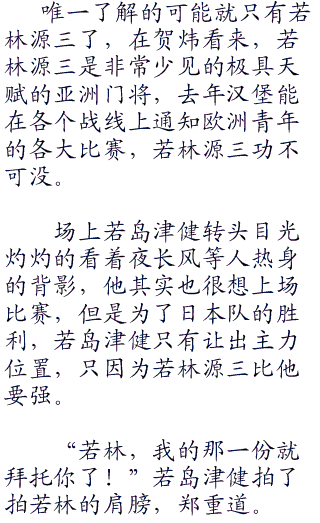 唯一了解的可能就只有若
林源三了，在贺炜看来，若
林源三是非常少见的极具天
赋的亚洲门将，去年汉堡能
在各个战线上通知欧洲青年
的各大比赛，若林源三功不
可没。
场上若岛津健转头目光
灼灼的看着夜长风等人热身
的背影，他其实也很想上场
比赛，但是为了日本队的胜
利，若岛津健只有让出主力
位置，只因为若林源三比他
要强。
“若林，我的那一份就
拜托你了！”若岛津健拍了
拍若林的肩膀，郑重道。